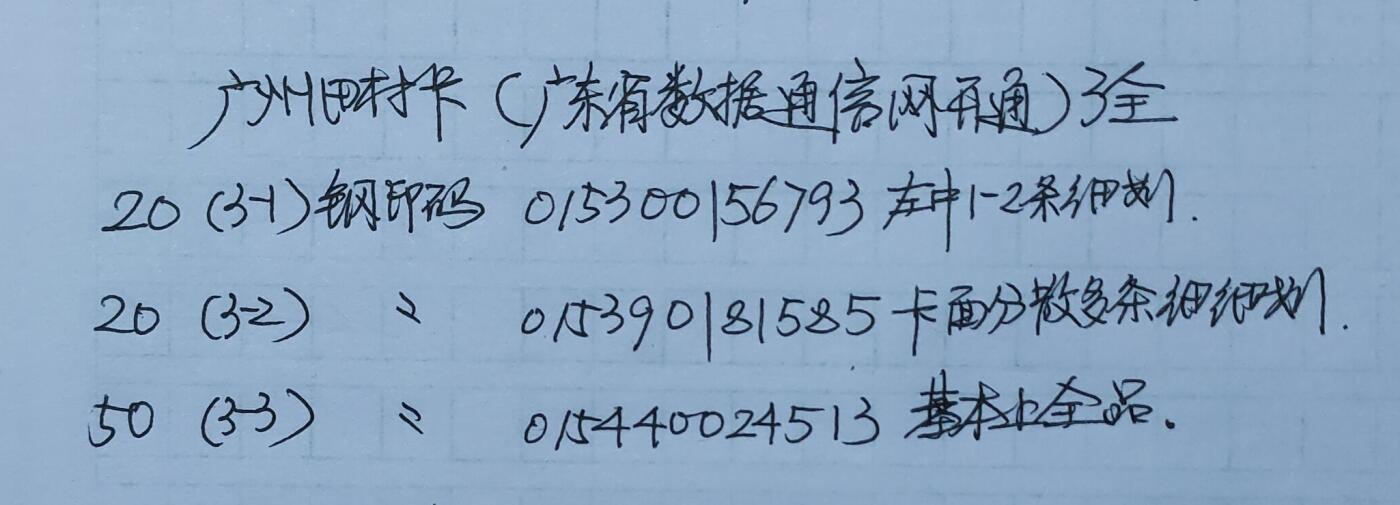 广州田村卡(广东省数据通信网开通)3全
20 (3-1) 钢印码 015300156793 左中1-2条细划.
20 (3-2) 〃 015390181585 卡面分散多条细细划.
50 (3-3) 〃 015440024513 基本上全品.